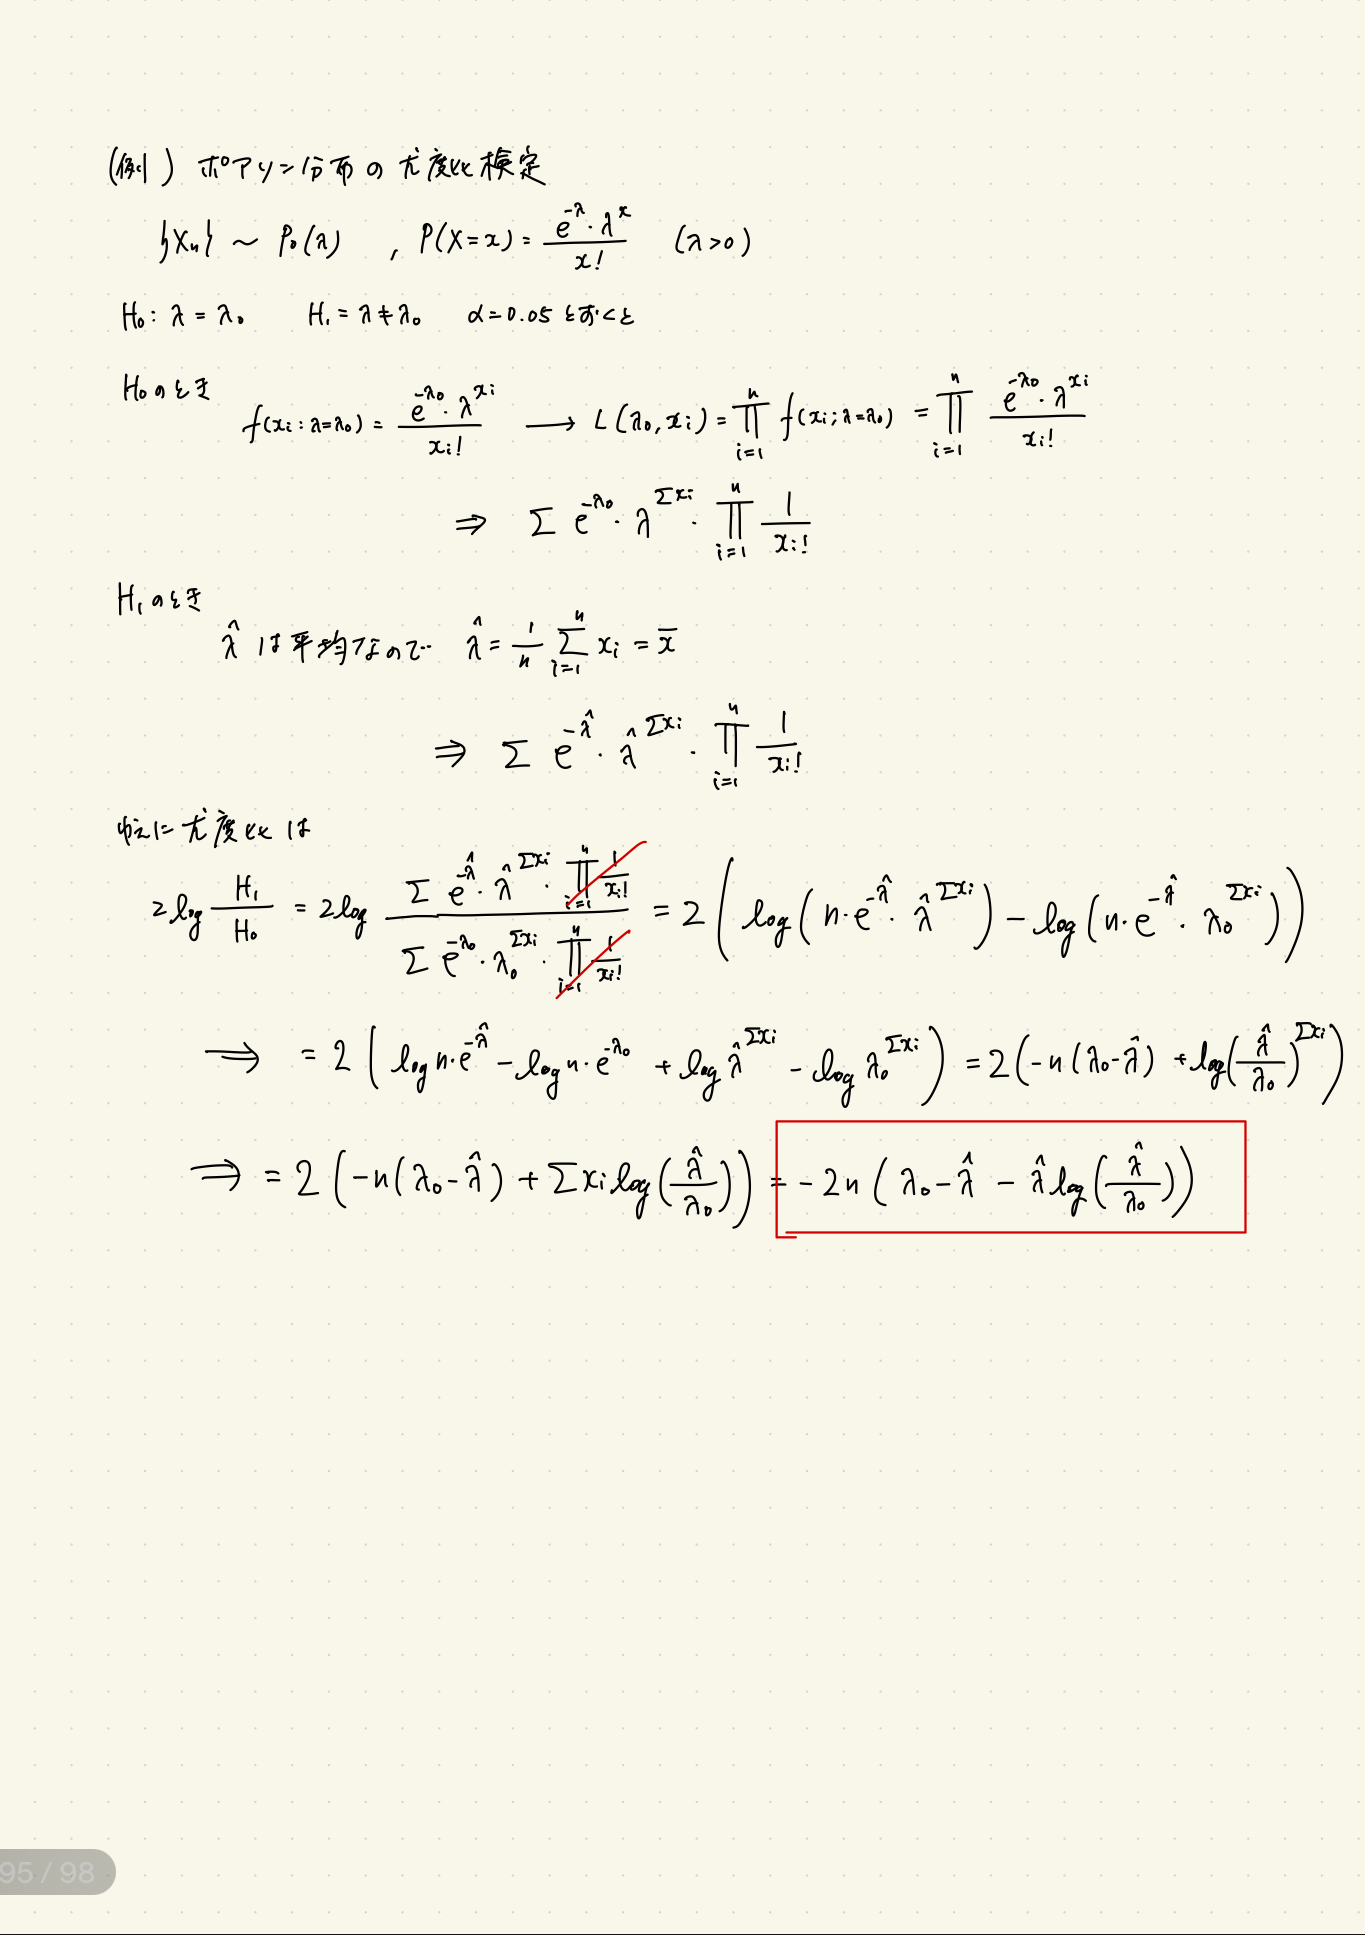 (例) ポアソン分布の尤度比検定
{Xn} ~ Po(λ) , P(X=x) = e^{-λ}・λ^x / x! (λ>0)
H₀: λ = λ₀ H₁ = λ ≠ λ₀ α=0.05 とおくと
H₀のとき
f(xi : λ=λ₀) = e^{-λ₀}・λ^{xi} / xi! → L(λ₀, xi) = ∏_{i=1}^{n} f(xi ; λ=λ₀) = ∏_{i=1}^{n} e^{-λ₀}・λ^{xi} / xi!
⇒ Σ e^{-λ₀}・λ^{Σxi}・∏_{i=1}^{n} 1/xi!
H₁のとき
λ̂ は平均なので λ̂ = 1/n Σ_{i=1}^{n} xi = x̄
⇒ Σ e^{-λ̂}・λ̂^{Σxi}・∏_{i=1}^{n} 1/xi!
ゆえに尤度比は
2log H₁/H₀ = 2log (Σ e^{-λ̂}・λ̂^{Σxi}・∏_{i=1}^{n} 1/xi!) / (Σ e^{-λ₀}・λ₀^{Σxi}・∏_{i=1}^{n} 1/xi!) = 2(log(n・e^{-λ̂}・λ̂^{Σxi}) - log(n・e^{-λ̂}・λ₀^{Σxi}))
⇒ = 2(log n・e^{-λ̂} - log n・e^{-λ₀} + log λ̂^{Σxi} - log λ₀^{Σxi}) = 2(-n(λ₀-λ̂) + log(λ̂/λ₀)^{Σxi})
⇒ = 2(-n(λ₀-λ̂) + Σxi log(λ̂/λ₀)) = -2n(λ₀-λ̂ - λ̂ log(λ̂/λ₀))
95 / 98